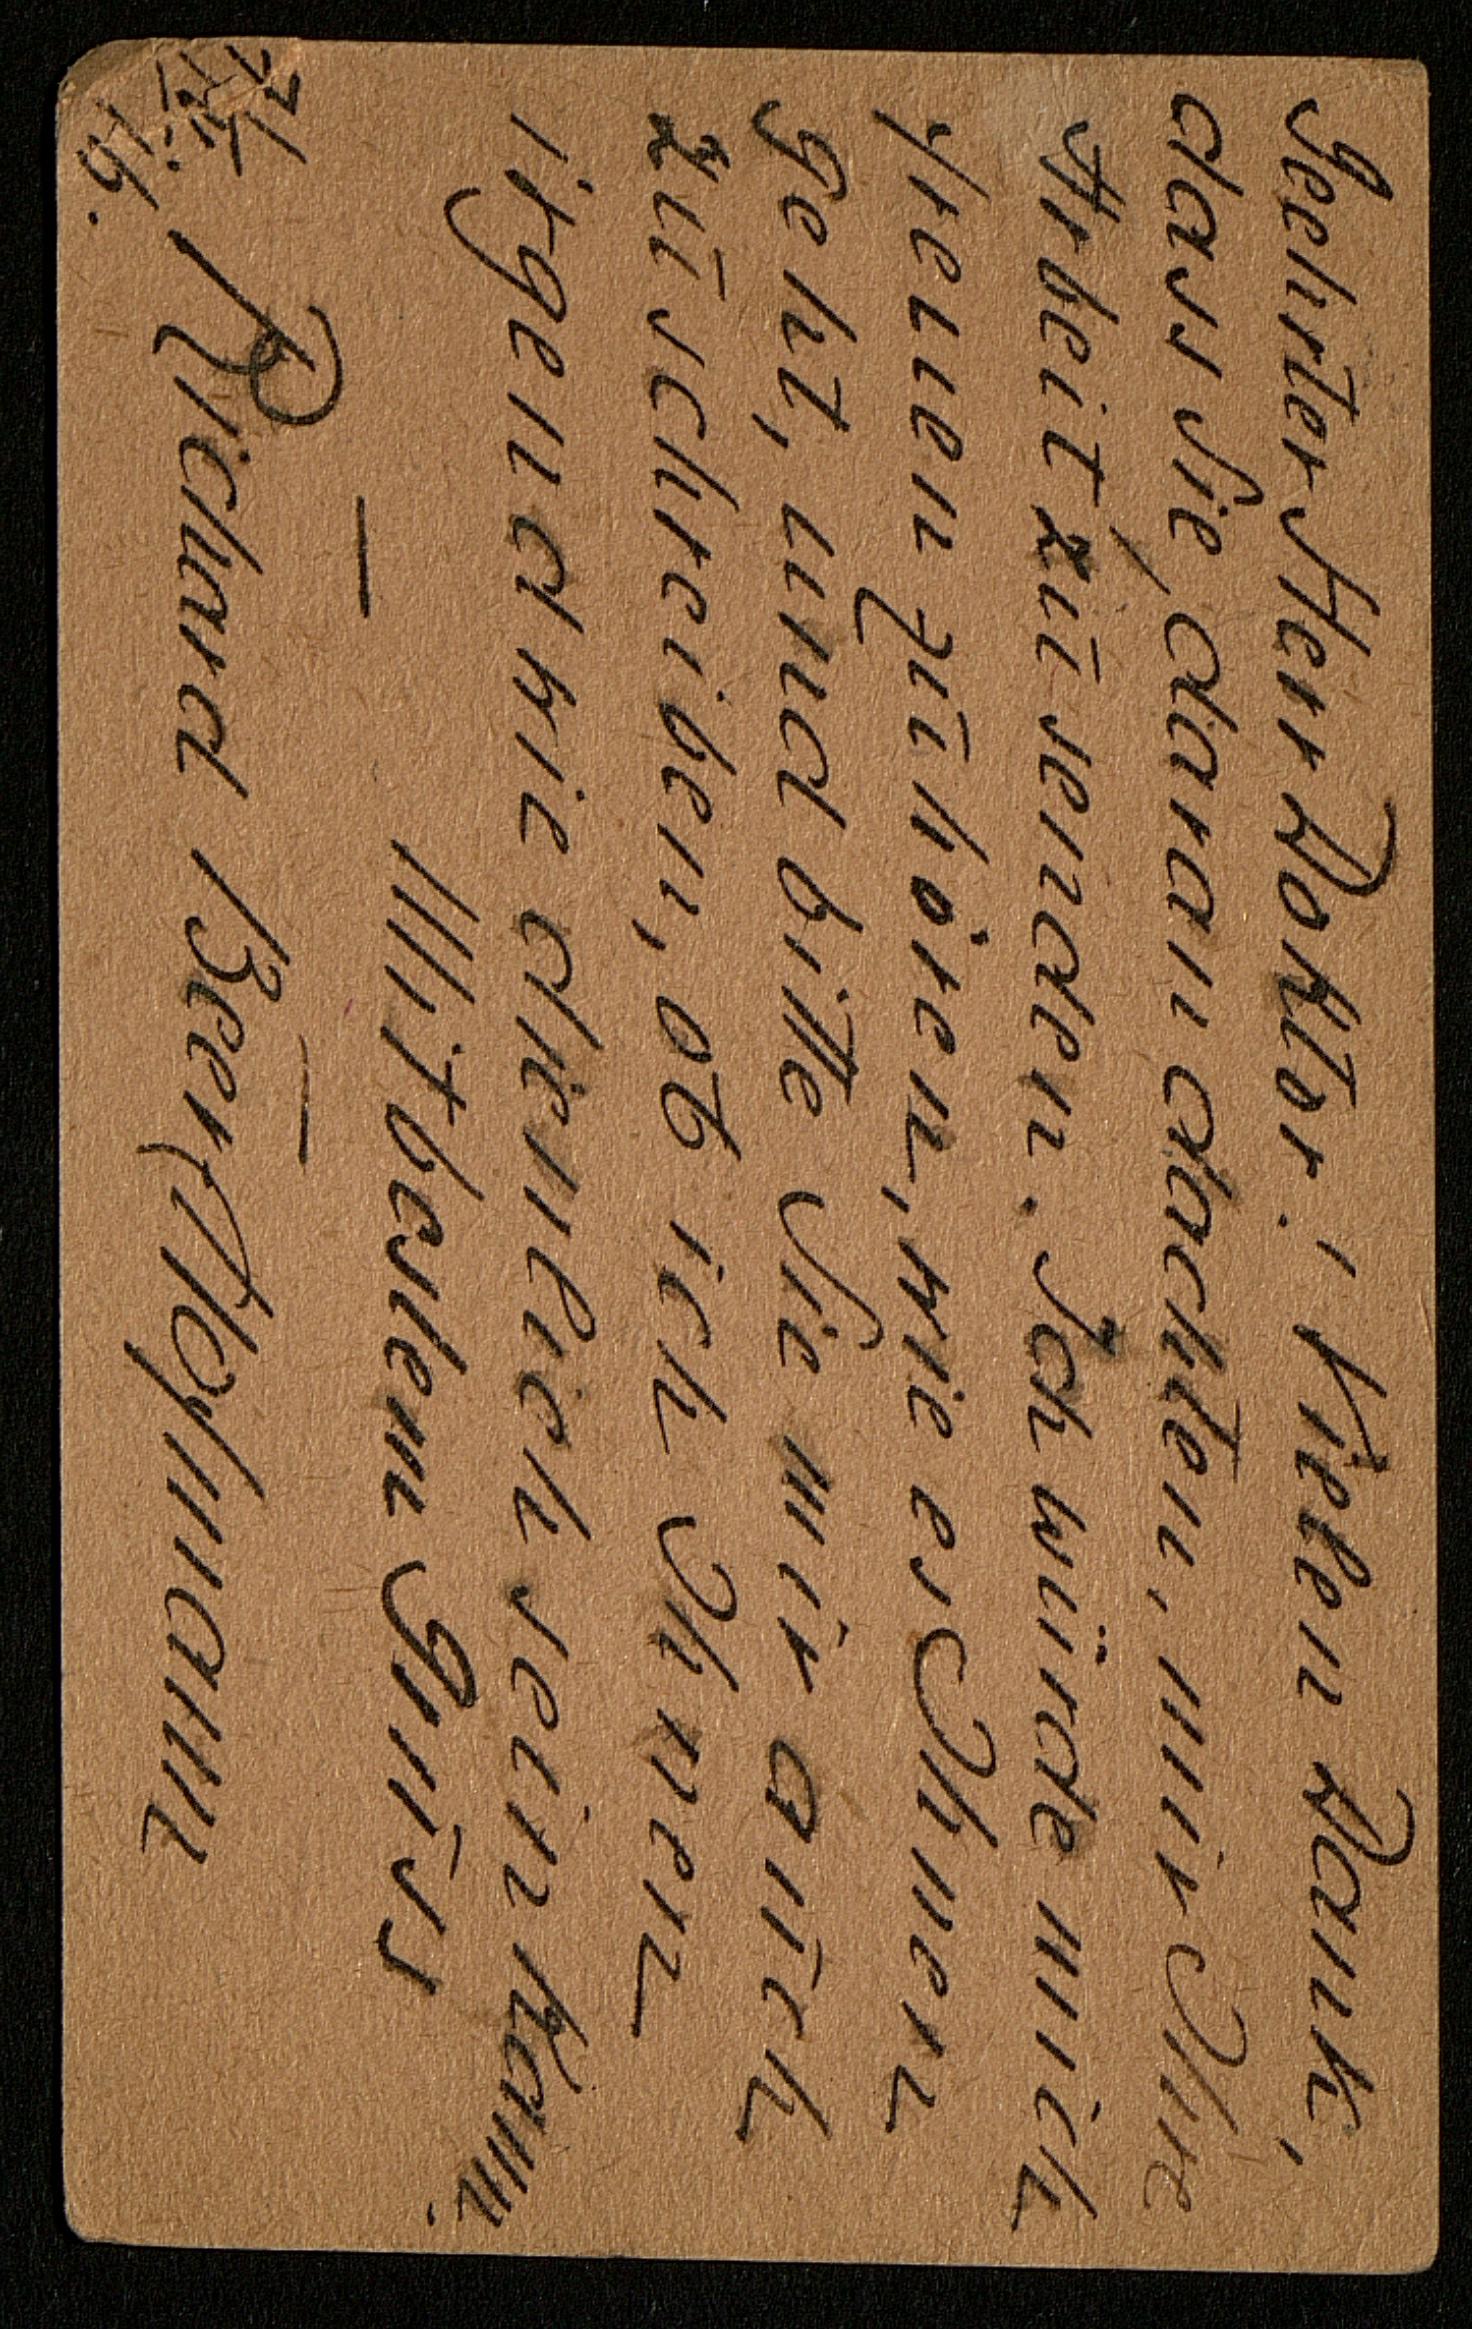 Geehrter Herr Doktor! Vielen Dank,
dass Sie daran dachten, mir Ihre
Arbeit zu senden. Ich würde mich
freuen zu hören, wie es Ihnen
geht, und bitte Sie mir auch
zu schreiben, ob ich Ihnen
irgendwie dienlich sein kann.
Mit bestem Gruss
Richard Beer-Hofmann
16.